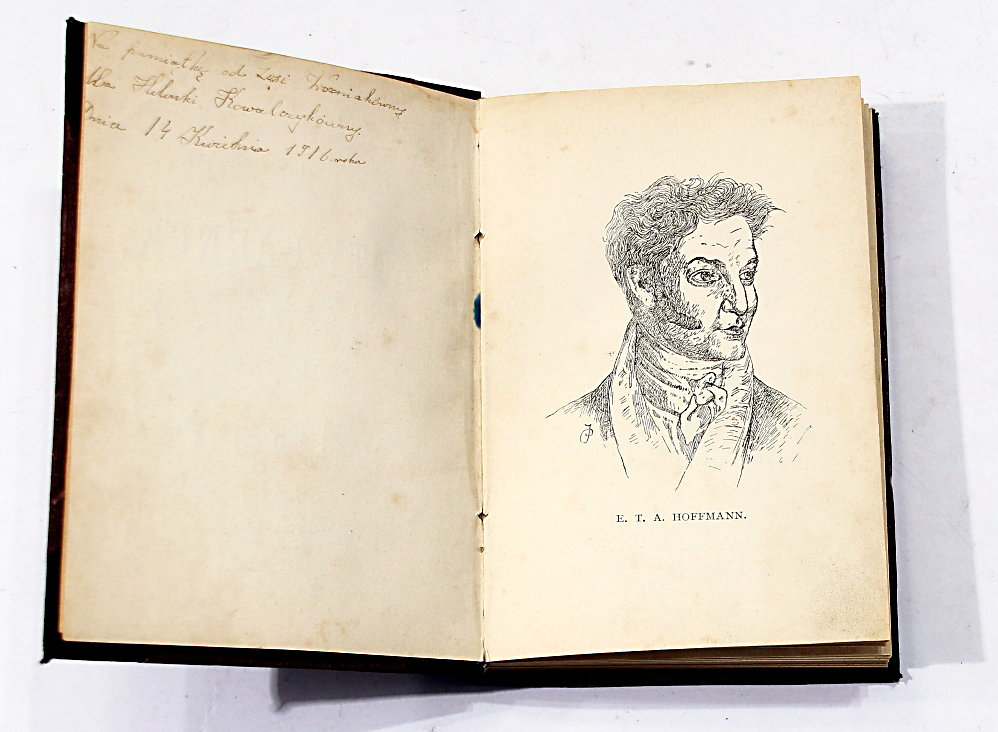 Na pamiątkę od Zosi Woźniakówny
dla Helenki Kowalczykówny.
Dnia 14 Kwietnia 1916 roku
E. T. A. HOFFMANN.